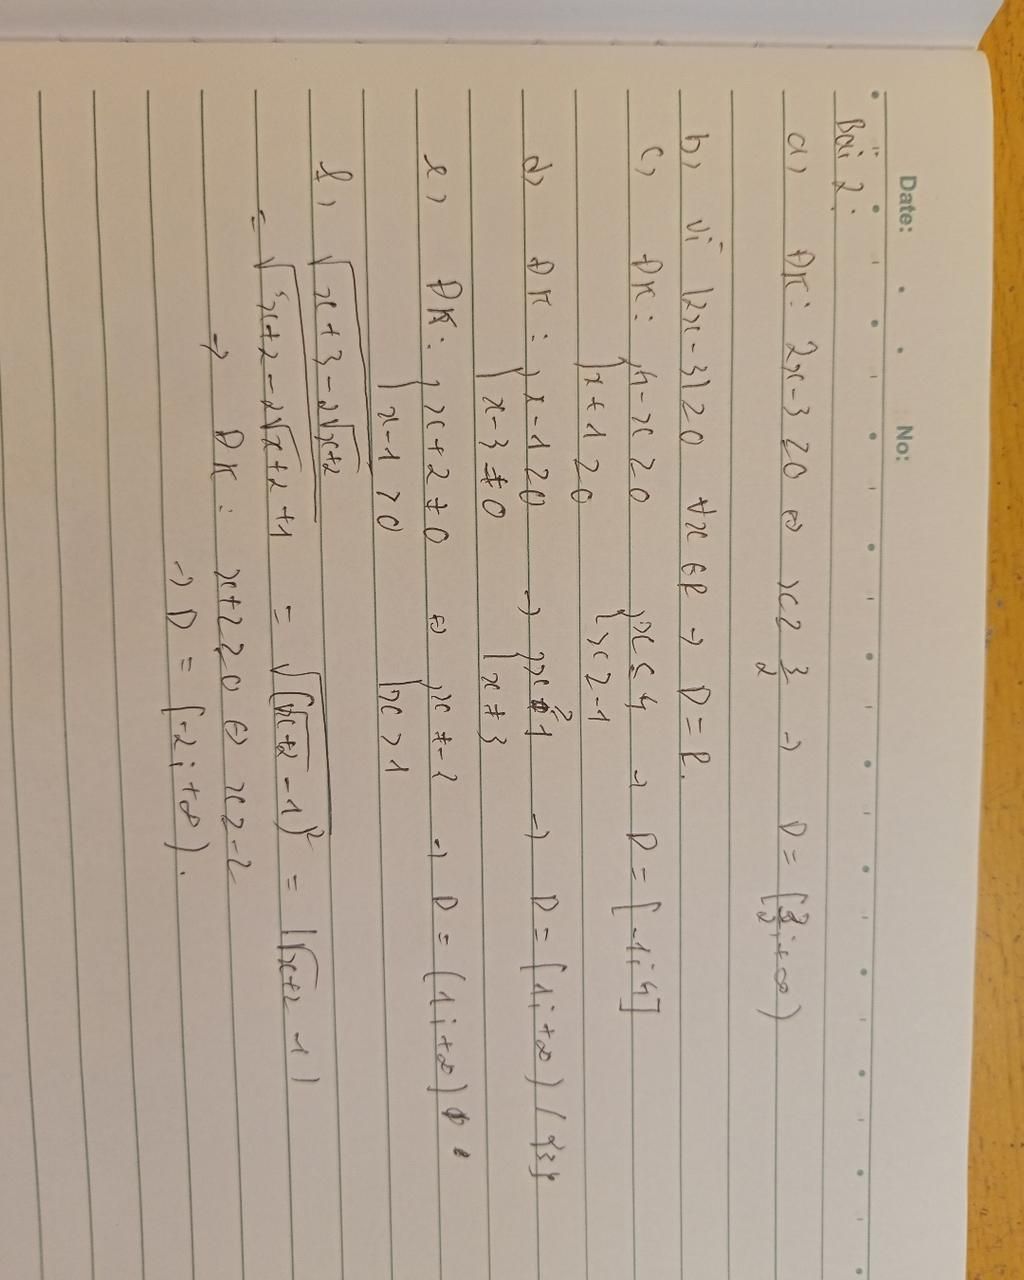 Date: No:
Bài 2:
a, ĐK: 2x-3 ≥ 0 ⇔ x ≥ 3/2 → D = [3/2; +∞)
b, Vì |2x-3| ≥ 0 ∀x ∈ R → D = R.
c, ĐK: { 4-x ≥ 0 { x ≤ 4 → D = [-1; 4]
x+1 ≥ 0 x ≥ -1
d, ĐK: { x-1 ≥ 0 → { x ≥ 1 → D = [1; +∞) / {3}
x-3 ≠ 0 x ≠ 3
e, ĐK: { x+2 ≠ 0 ⇔ { x ≠ -2 → D = (1; +∞)
x-1 > 0 x > 1
f, √(x+3-2√(x+2))
= √(x+2-2√(x+2)+1) = √((√(x+2) -1)²) = |√(x+2) -1|
→ ĐK: x+2 ≥ 0 ⇔ x ≥ -2
→ D = [-2; +∞).